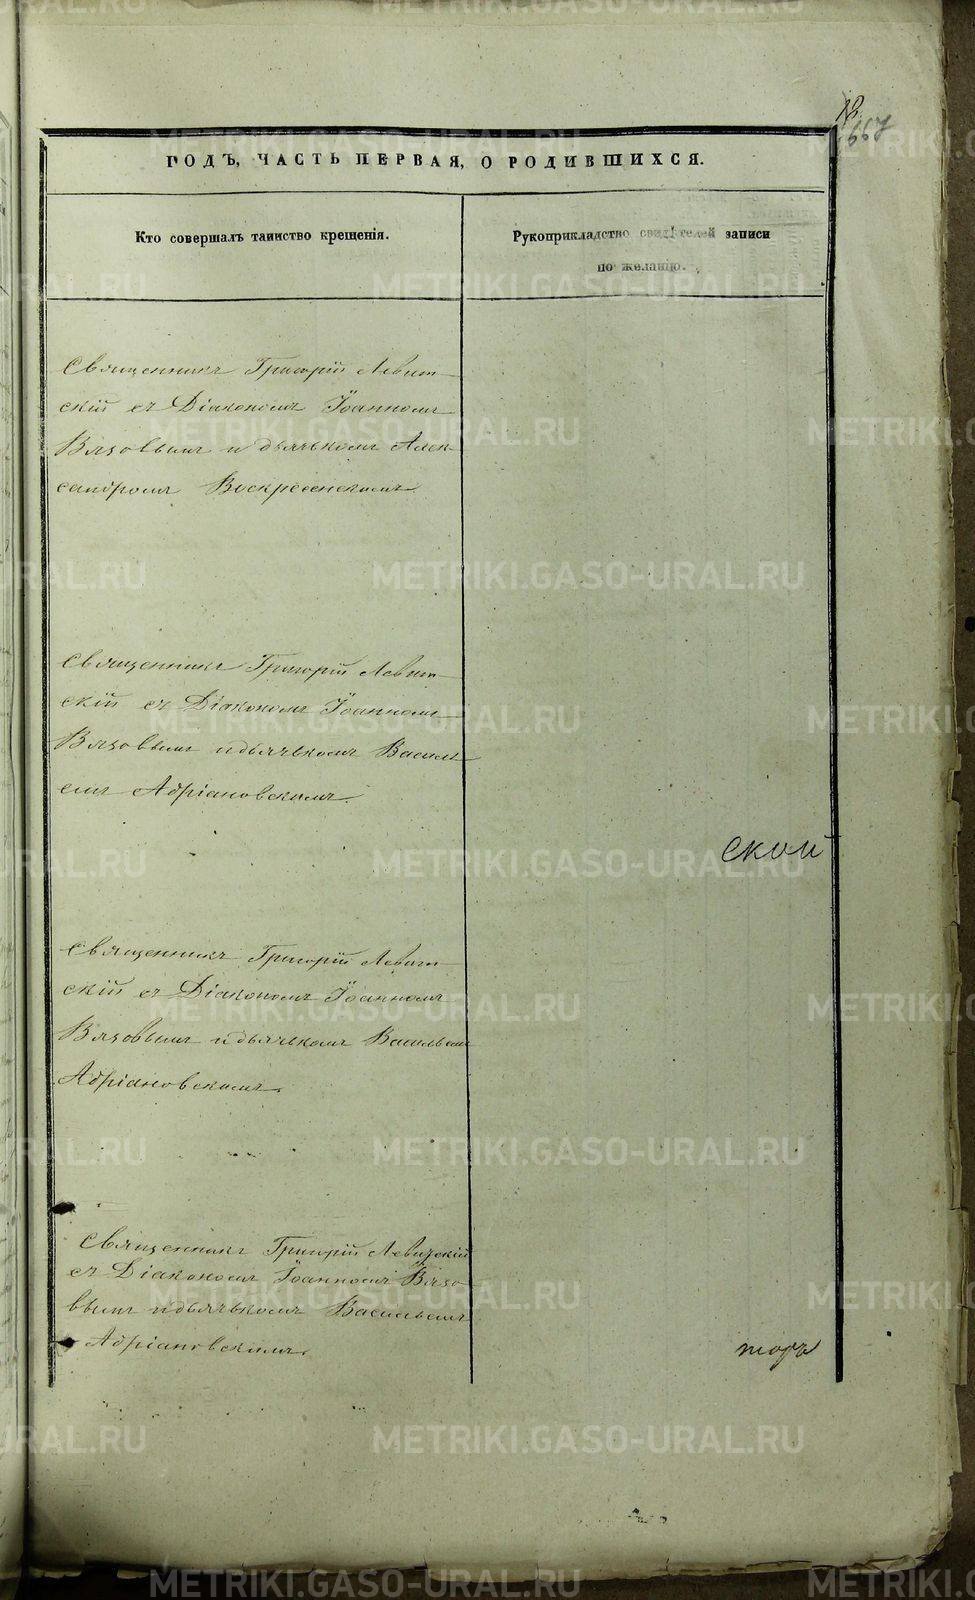 18
667
ГОДЪ, ЧАСТЬ ПЕРВАЯ, О РОДИВШИХСЯ.
Кто совершалъ таинство крещенія.
Рукоприкладство свидѣтелей записи
по желанію.
Священникъ Григорій Левит-
скій съ Діакономъ Іоанномъ
Вязовымъ и дьячькомъ Алек-
сандромъ Воскресенскимъ.
Священникъ Григорій Левит-
скій съ Діакономъ Іоанномъ
Вязовымъ и дьячькомъ Василь-
емъ Адріановскимъ.
ской
Священникъ Григорій Левит-
скій съ Діакономъ Іоанномъ
Вязовымъ и дьячькомъ Васильемъ
Адріановскимъ.
Священникъ Григорій Левитскій
съ Діакономъ Іоанномъ Вязо-
вымъ и дьячькомъ Васильемъ
Адріановскимъ.
торъ
METRIKI.GASO-URAL.RU